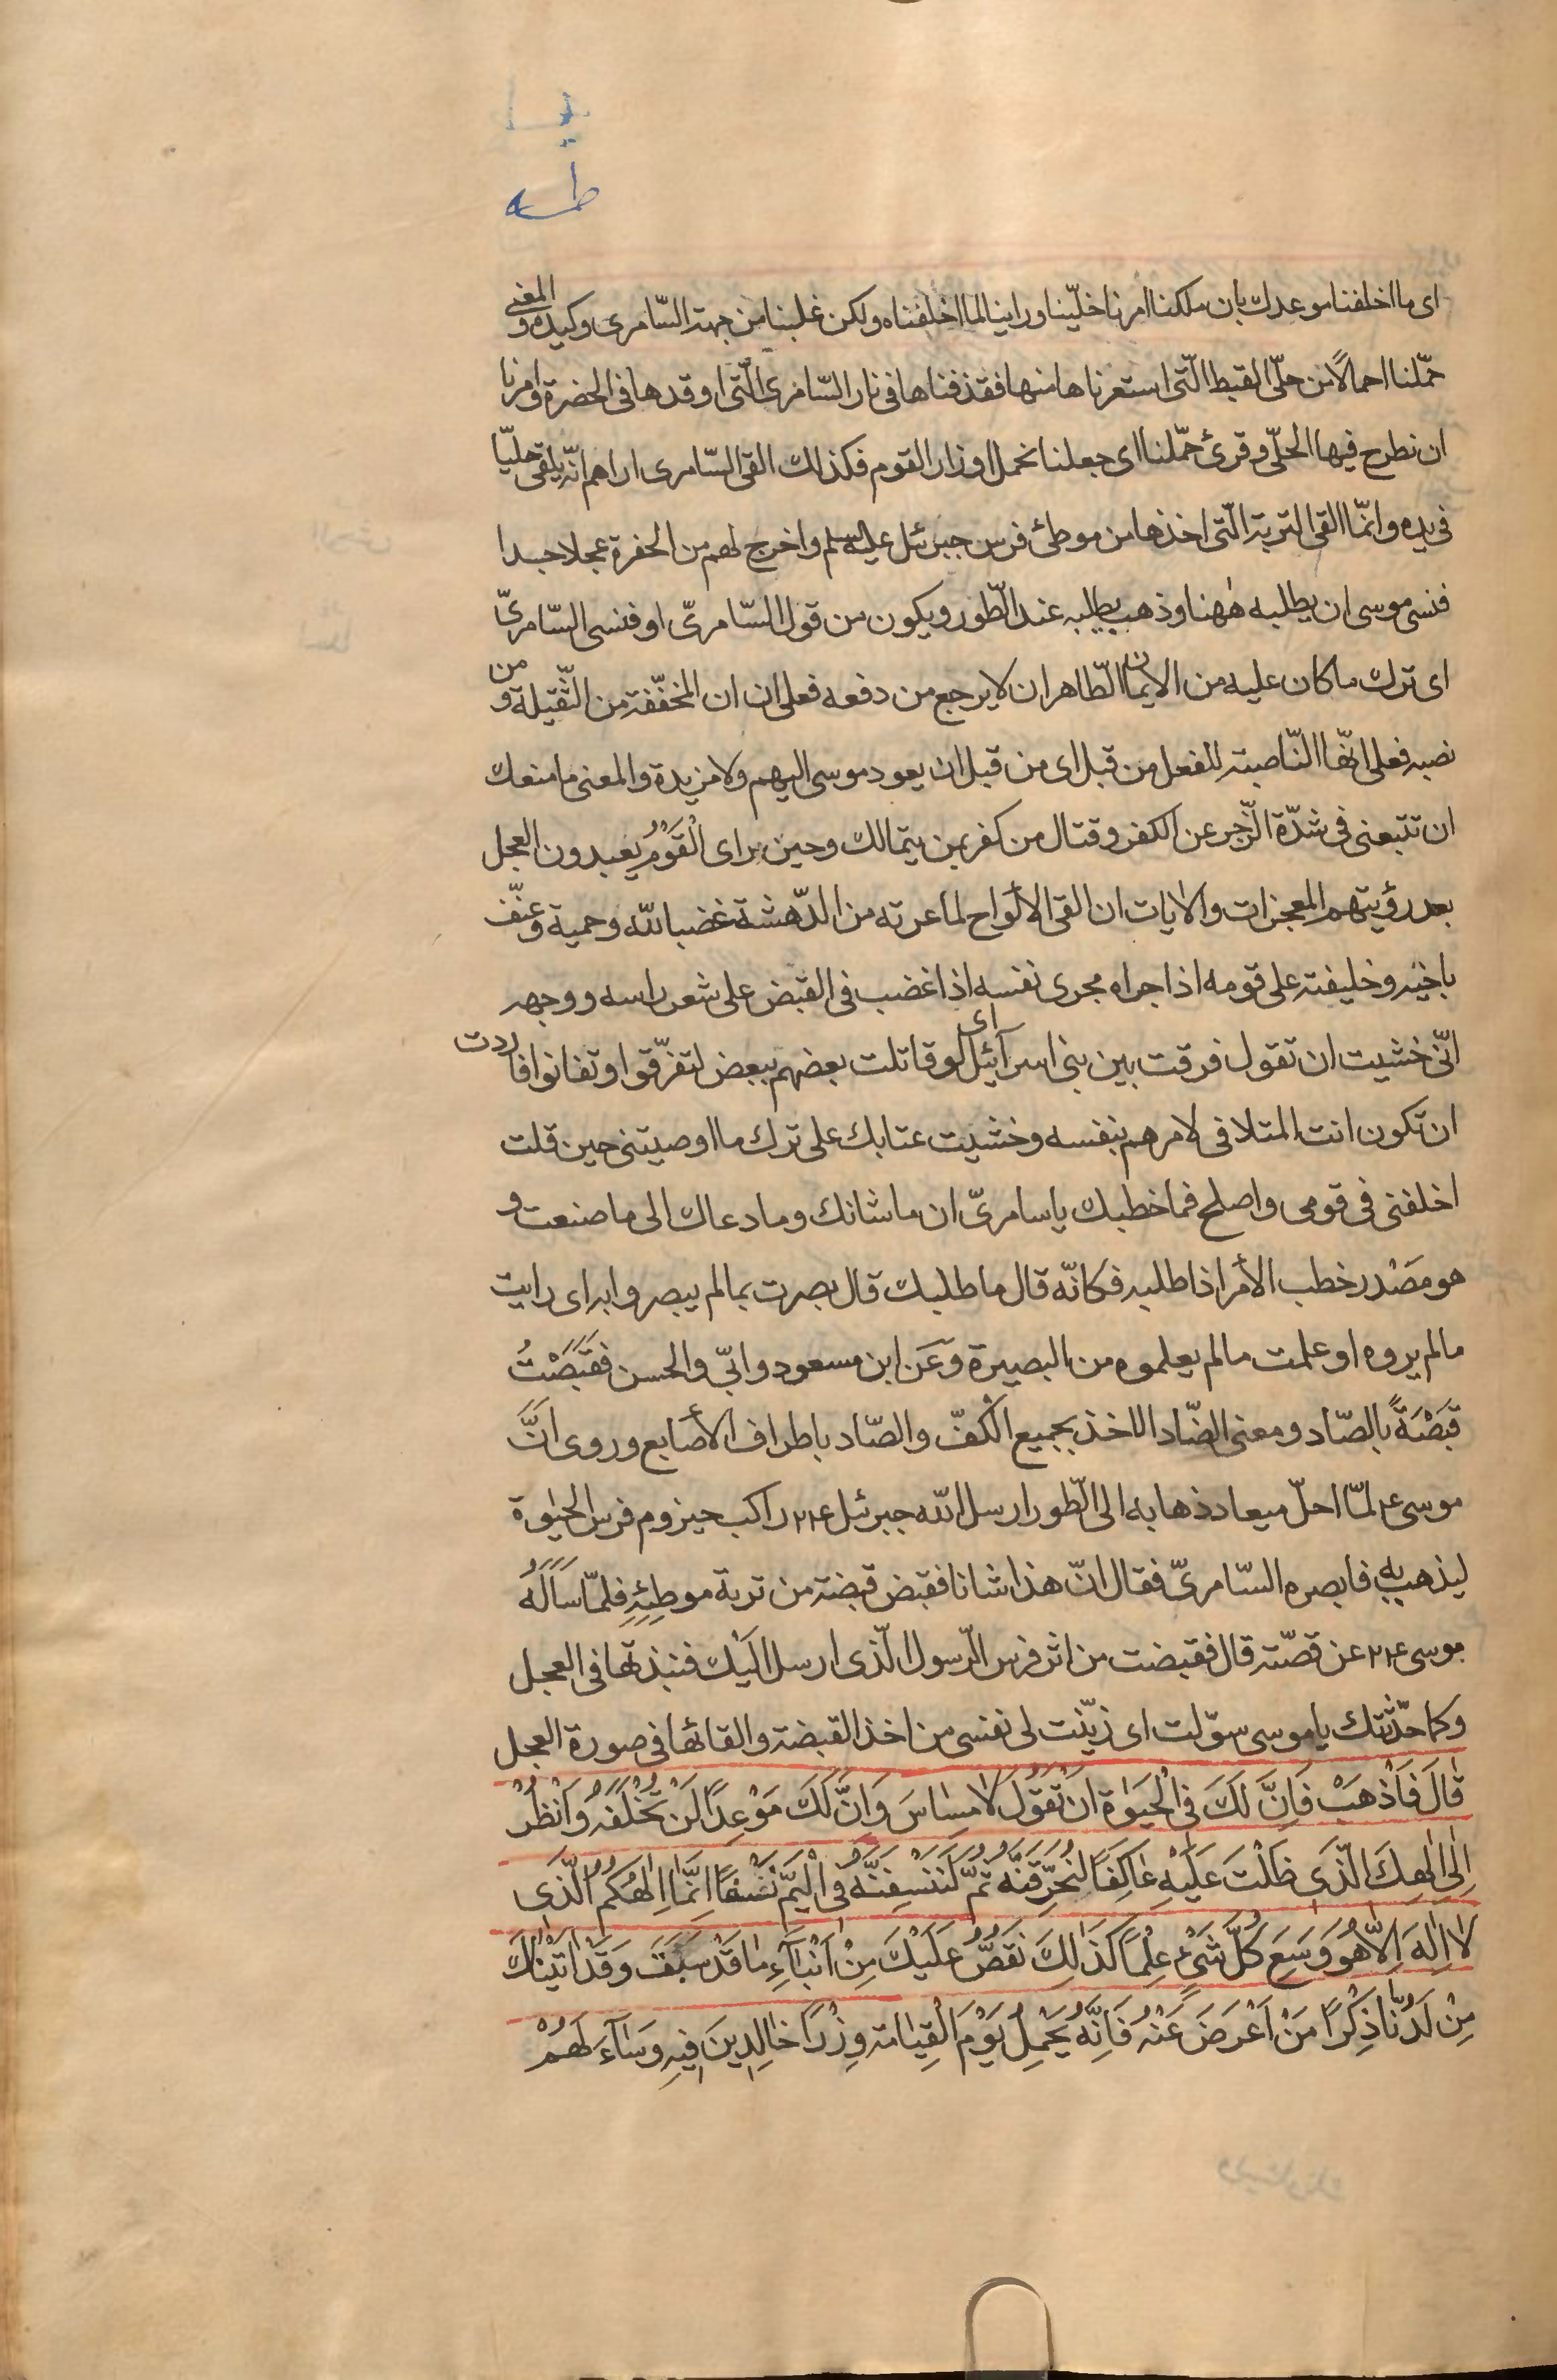 طه
اى ما اخلفنا موعدك بان ملكنا امرنا خلّينا وراينا لما اخلفناه ولكن غلبنا من جهة السّامرى وكيده والمعنى
حمّلنا احمالاً من حلّى القبط الّتى استعرناها منها فقذفناها فى نار السّامرى الّتى اوقدها فى الحضرة وامرنا
ان نطرح فيها الحلّى وقرئ حمّلنا اى جعلنا نحمل اوزار القوم فكذلك القى السّامرى اراهم انّه يلقى حليّا
فى يده وانمّا القى التربة الّتى اخذها من موطئ فرس جبرئيل عليه السلم واخرج لهم من الحفرة عجلا جسدا
فنسى موسى ان يطلبه هٰهنا وذهب يطلبه عند الطّور ويكون من قول السّامرىّ او فنسى السّامرىّ
اى ترك ما كان عليه من الايمان الظّاهر ان لا يرجع من دفعه فعلى ان ان المخفّفة من الثّقيلة ومن
نصبه فعلى انهّا النّاصبة للفعل من قبل اى من قبل ان يعود موسى اليهم ولا مزيدة والمعنى ما منعك
ان تتبعنى فى شدّة الزّجر عن الكفر وقتال من كفر بمن يتمالك وحين راى الْقَوْمُ يعبدون العجل
بعد رؤيتهم المعجزات والايات ان القى الألواح لما عرته من الدّهشة غضبا لله وحمية وعنّف
باخيه وخليفته على قومه اذا جراه مجرى نفسه اذا غضب فى القبض على شعر راسه ووجهه
انّى خشيت ان تقول فرقت بين بنى اسرآئيل اى لو قاتلت بعضهم ببعض لتفرّقوا وتفانوا فاردت
ان تكون انت المتلافى لامرهم بنفسه وخشيت عتابك على ترك ما اوصيتنى حين قلت
اخلفنى فى قومى واصلح فما خطبك يا سامرىّ ان ما شانك وما دعاك الى ما صنعت و
هو مصْدر خطب الأمر اذا طلبه فكانّه قال ما طلبك قال بصرت بما لم يبصروا به اى رايت
ما لم يروه او علمت ما لم يعلموه من البصيرة وعَن ابن مسعود وابىّ والحسن فقَبَصْتُ
قَبْصَةً بالصّاد ومعنى الضّاد الاخذ بجميع الْكفّ والصّاد باطراف الأصابع وروى انَّ
موسى ع لمّا احلّ ميعاد ذهابه الى الطّور ارسل الله جبرئيل ع راكب حيزوم فرس الحيٰوة
ليذهب به فابصره السّامرىّ فقال انّ هذا شانا فقبض قبضة من تربة موطِئِهِ فلمّا سَاَلَهُ
موسى ع عن قصّته قال فقبضت من اثر فرس الرّسول الّذى ارسل اليْك فنبذتها فى العجل
وكما حدّثتك يا موسى سوّلت اى زيّنت لى نفسى من اخذ القبضة والقائها فى صورة العجل
قٰالَ فَاذْهَبْ فَاِنَّ لَكَ فِى الْحَيٰوةِ اَنْ تَقُولَ لٰا مِسٰاسَ وَاِنَّ لَكَ مَوْعِدًا لَنْ تُخْلَفَهُ وَانْظُرْ
اِلٰى اِلٰهِكَ الَّذِى ظَلْتَ عَلَيْهِ عٰاكِفًا لَنُحَرِّقَنَّهُ ثُمَّ لَنَنْسِفَنَّهُ فِى الْيَمِّ نَسْفًا اِنَّمٰا اِلٰهُكُمُ الَّذِى
لٰا اِلٰهَ اِلّٰا هُوَ وَسِعَ كُلَّ شَىْءٍ عِلْمًا كَذٰلِكَ نَقُصُّ عَلَيْكَ مِنْ اَنْبٰآءِ مٰا قَدْ سَبَقَ وَقَدْ اٰتَيْنٰاكَ
مِنْ لَدُنّٰا ذِكْرًا مَنْ اَعْرَضَ عَنْهُ فَاِنَّهُ يَحْمِلُ يَوْمَ الْقِيٰامَةِ وِزْرًا خٰالِدِينَ فِيهِ وَسٰآءَ لَهُمْ